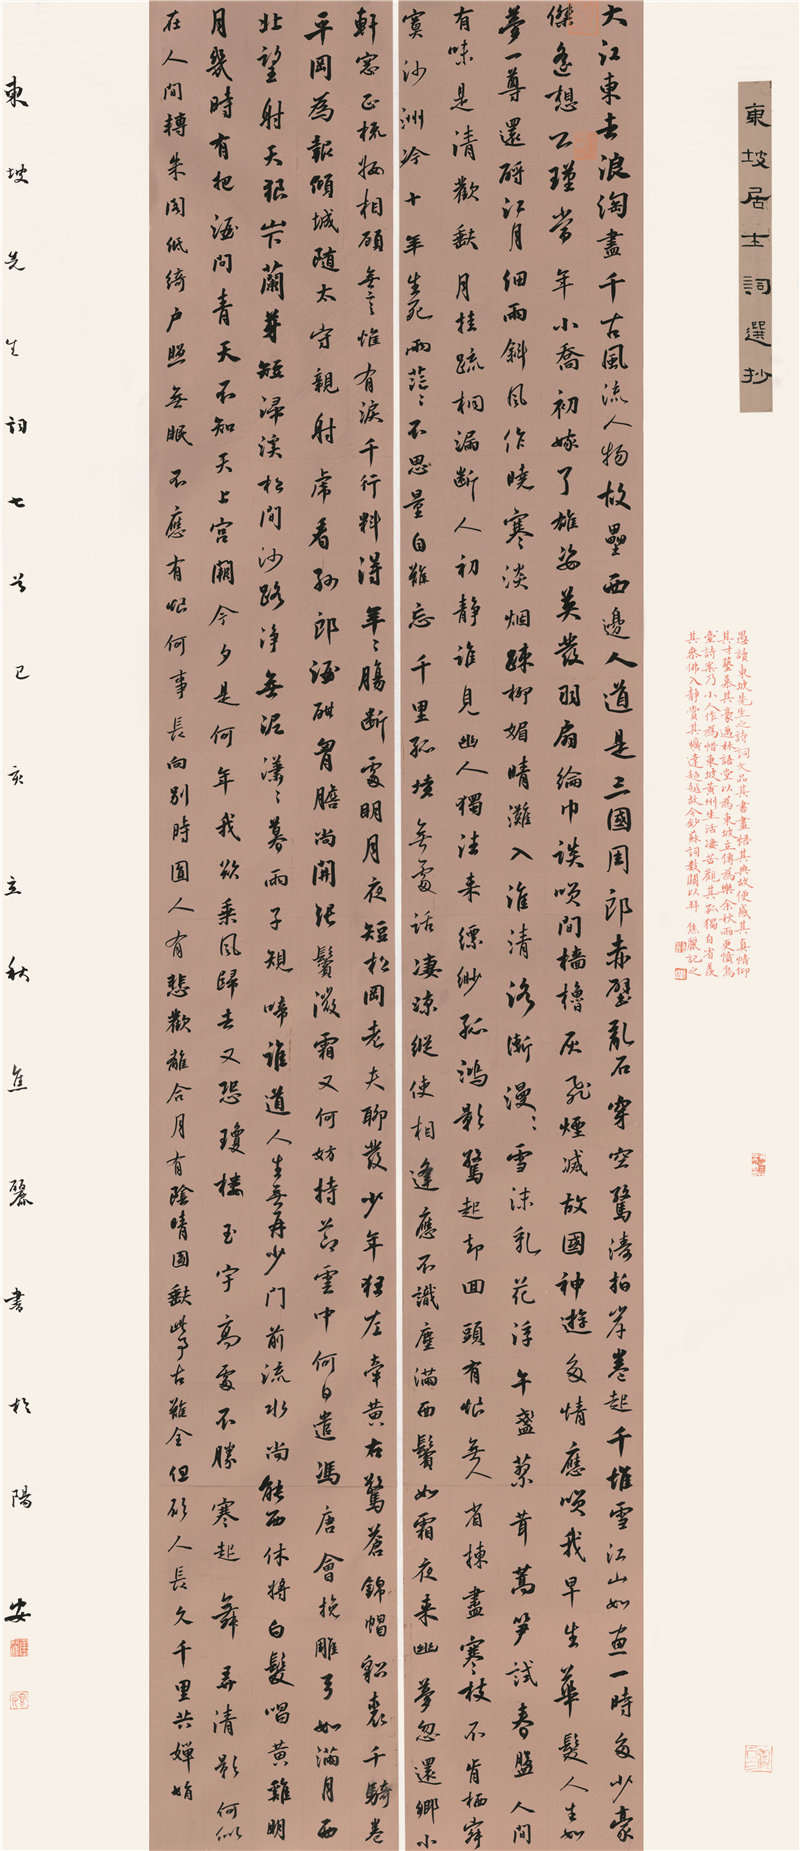 東坡居士詞選抄
愚讀東坡先生之詩詞文品其書畫悟其典故便感其真情仰
其才藝慕其豪邁林語堂以為東坡立傳為樂余秋雨更憤烏
臺詩案乃小人作為惜東坡黃州生活淒苦觀其孤獨自省羨
其參佛入靜賞其曠達超越故今鈔蘇詞數闋以拜 焦麗記之
大江東去浪淘盡千古風流人物故壘西邊人道是三國周郎赤壁亂石穿空驚濤拍岸卷起千堆雪江山如畫一時多少豪
傑遙想公瑾當年小喬初嫁了雄姿英發羽扇綸巾談笑間檣櫓灰飛煙滅故國神遊多情應笑我早生華髮人生如
夢一尊還酹江月細雨斜風作曉寒淡烟疎柳媚晴灘入淮清洛漸漫〻雪沫乳花浮午盞蓼茸蒿笋試春盤人間
有味是清歡缺月挂疏桐漏斷人初靜誰見幽人獨往來縹緲孤鴻影驚起却回頭有恨無人省揀盡寒枝不肯栖寂
寞沙洲冷十年生死兩茫〻不思量自難忘千里孤墳無處話淒涼縱使相逢應不識塵滿面鬢如霜夜來幽夢忽還鄉小
軒窓正梳妝相顧無言惟有淚千行料得年〻腸斷處明月夜短松岡老夫聊發少年狂左牽黃右擎蒼錦帽貂裘千騎卷
平岡為報傾城隨太守親射虎看孫郎酒酣胷膽尚開張鬢微霜又何妨持節雲中何日遣馮唐會挽雕弓如滿月西
北望射天狼山下蘭芽短浸溪松間沙路淨無泥瀟〻暮雨子規啼誰道人生無再少門前流水尚能西休將白髮唱黃雞明
月幾時有把酒問青天不知天上宮闕今夕是何年我欲乘風歸去又恐瓊樓玉宇高處不勝寒起舞弄清影何似
在人間轉朱閣低綺户照無眠不應有恨何事長向別時圓人有悲歡離合月有陰晴圓缺此事古難全但願人長久千里共嬋娟
東坡先生詞七首己亥立秋焦麗書於陽安